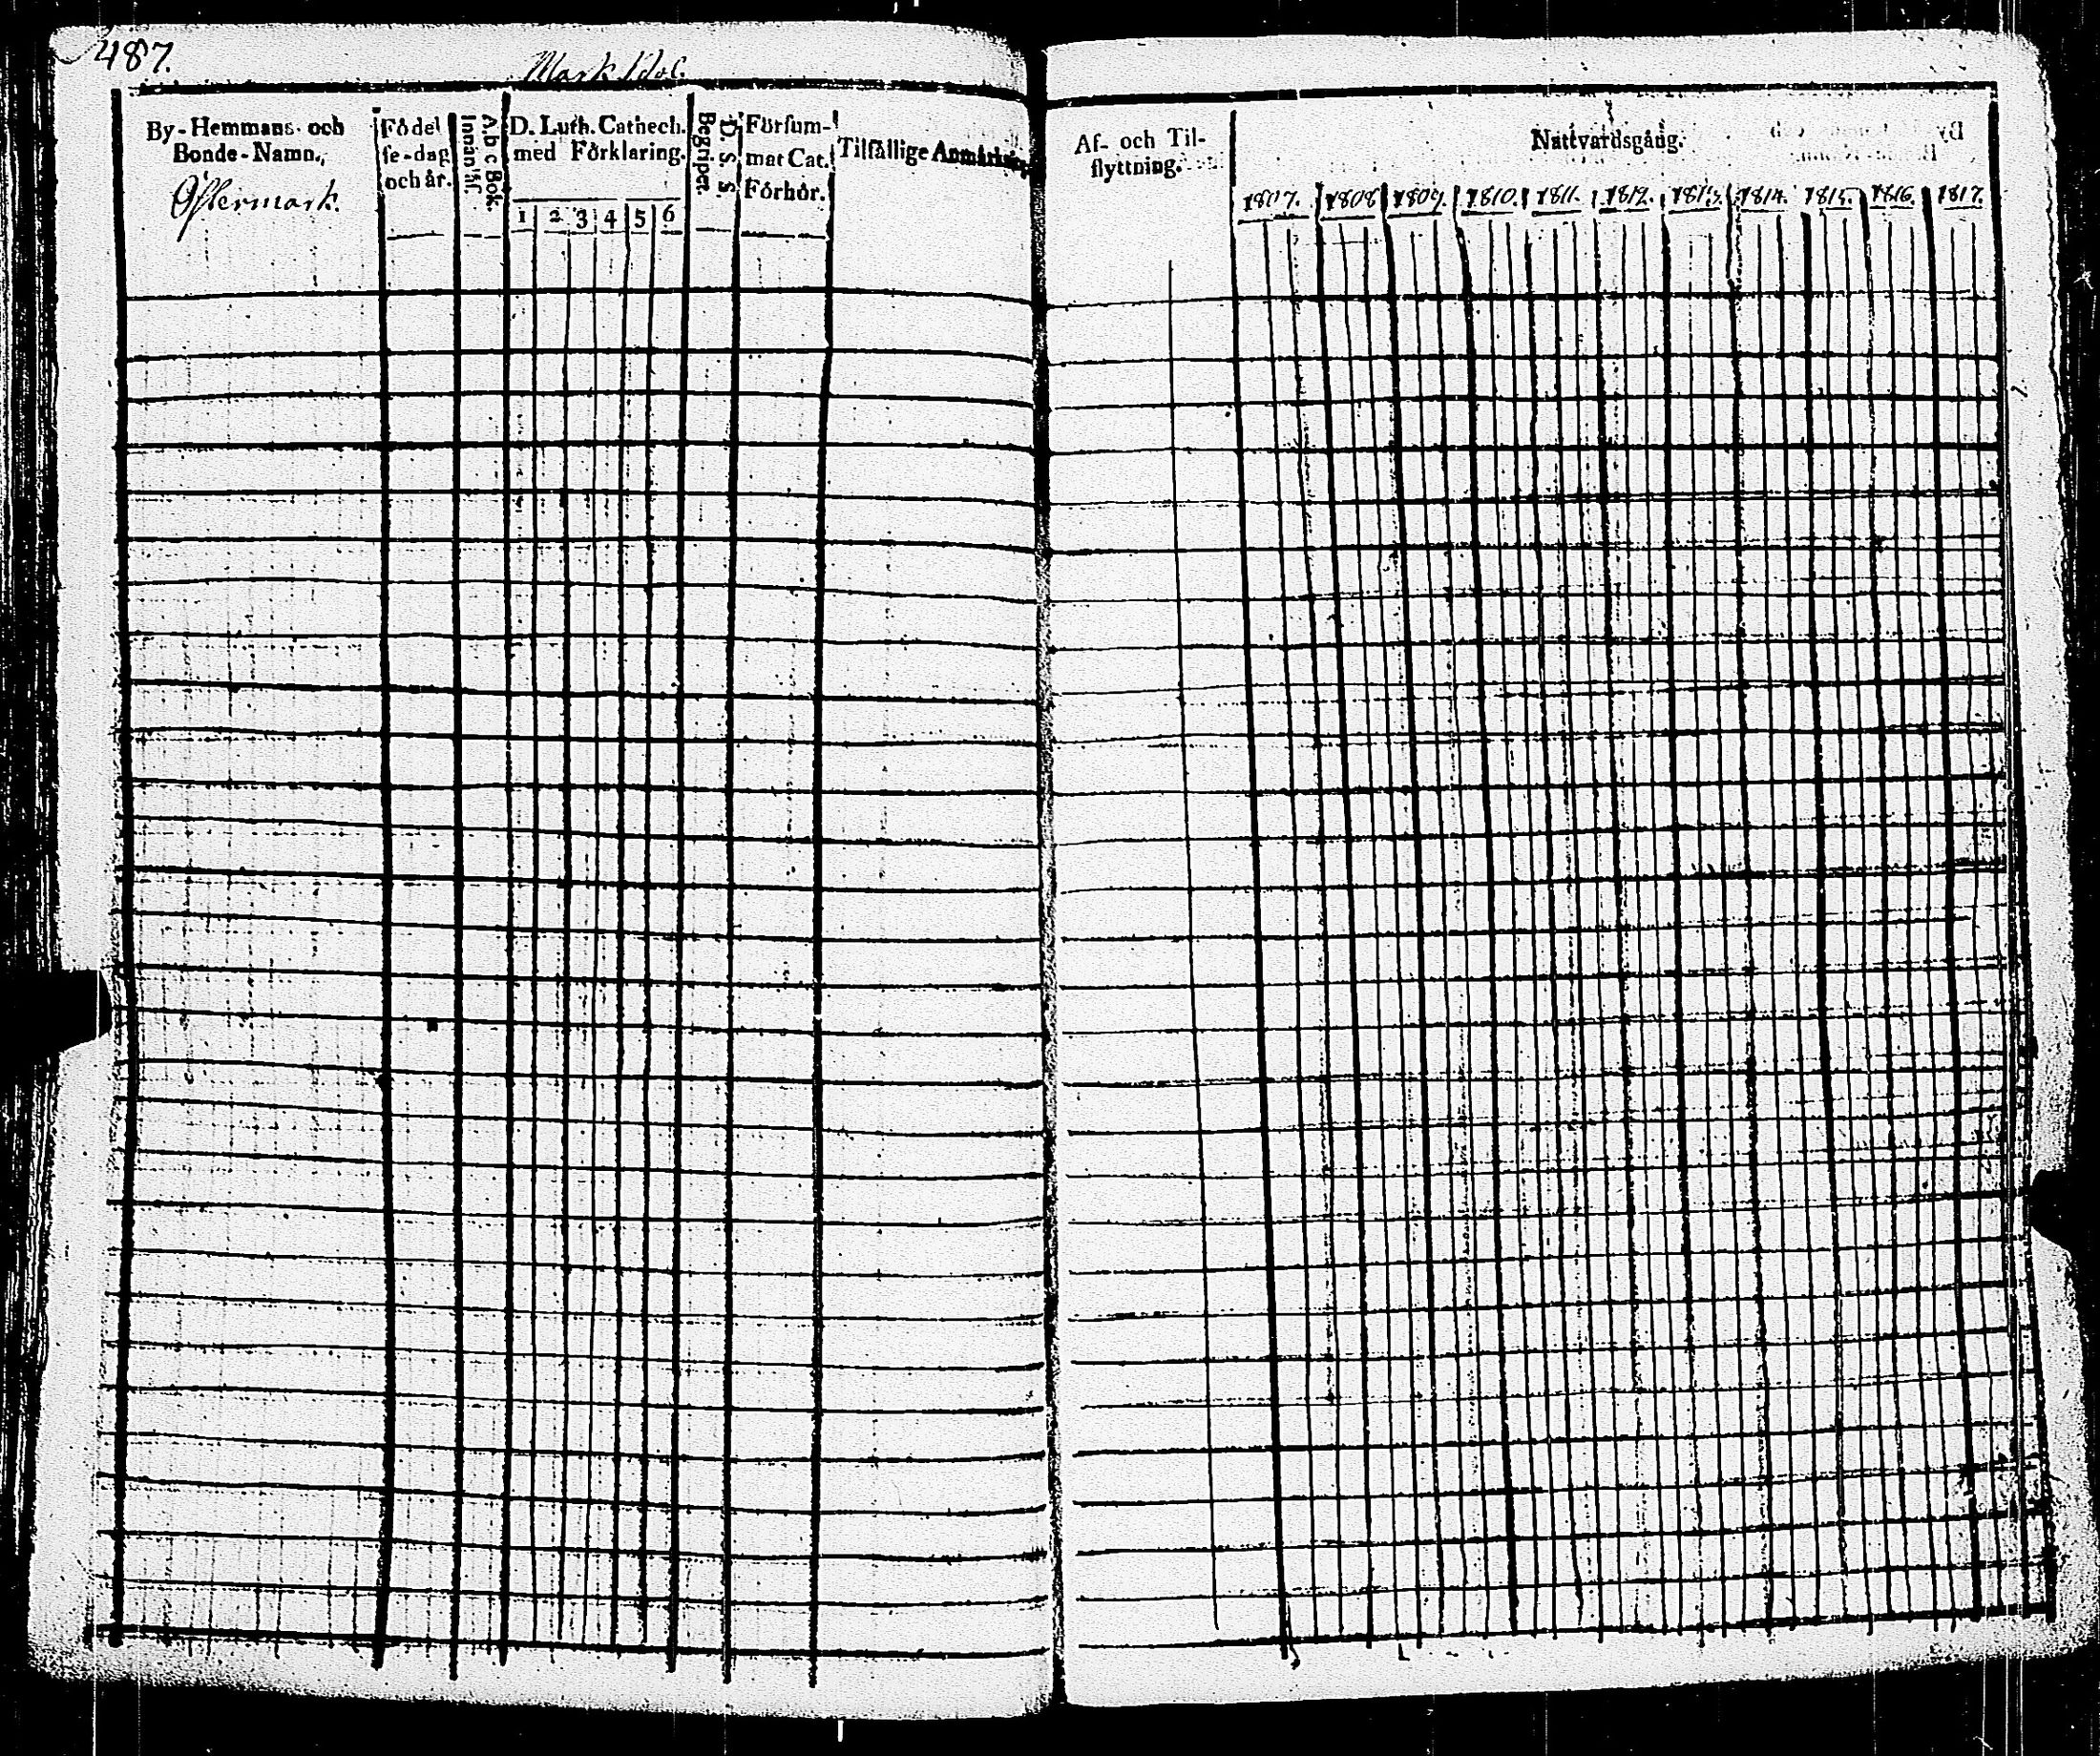 487.
Mark
By-Hemmans- och
Bonde-Namn.
Östermark.
Födel
se-dag
och år.
Innanläs.
A.b c Bok.
D. Luth. Cathech.
med Förklaring.
1 2 3 4 5 6
Begriper.
D. S. S.
Försum-
mat Cat.
Förhör.
Tilfällige Anmärkn
Af- och Til-
flyttning.
Nattvardsgång.
1807. 1808 1809. 1810. 1811. 1812. 1813. 1814. 1815. 1816. 1817.